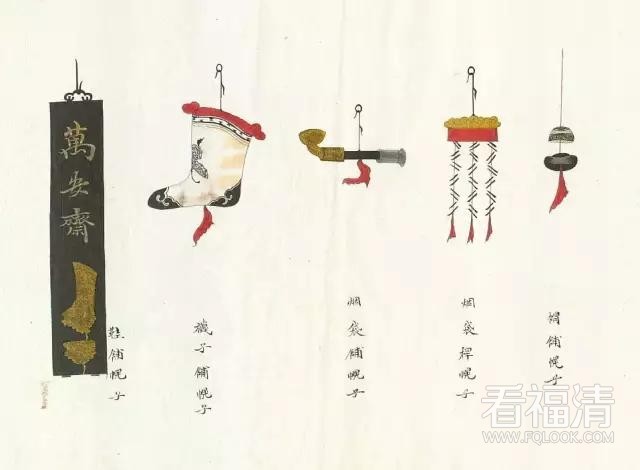 萬安齋
鞋舖幌子
襪子舖幌子
烟袋舖幌子
烟袋桿幌子
帽舖幌子
看福清
WWW.FQLOOK.COM